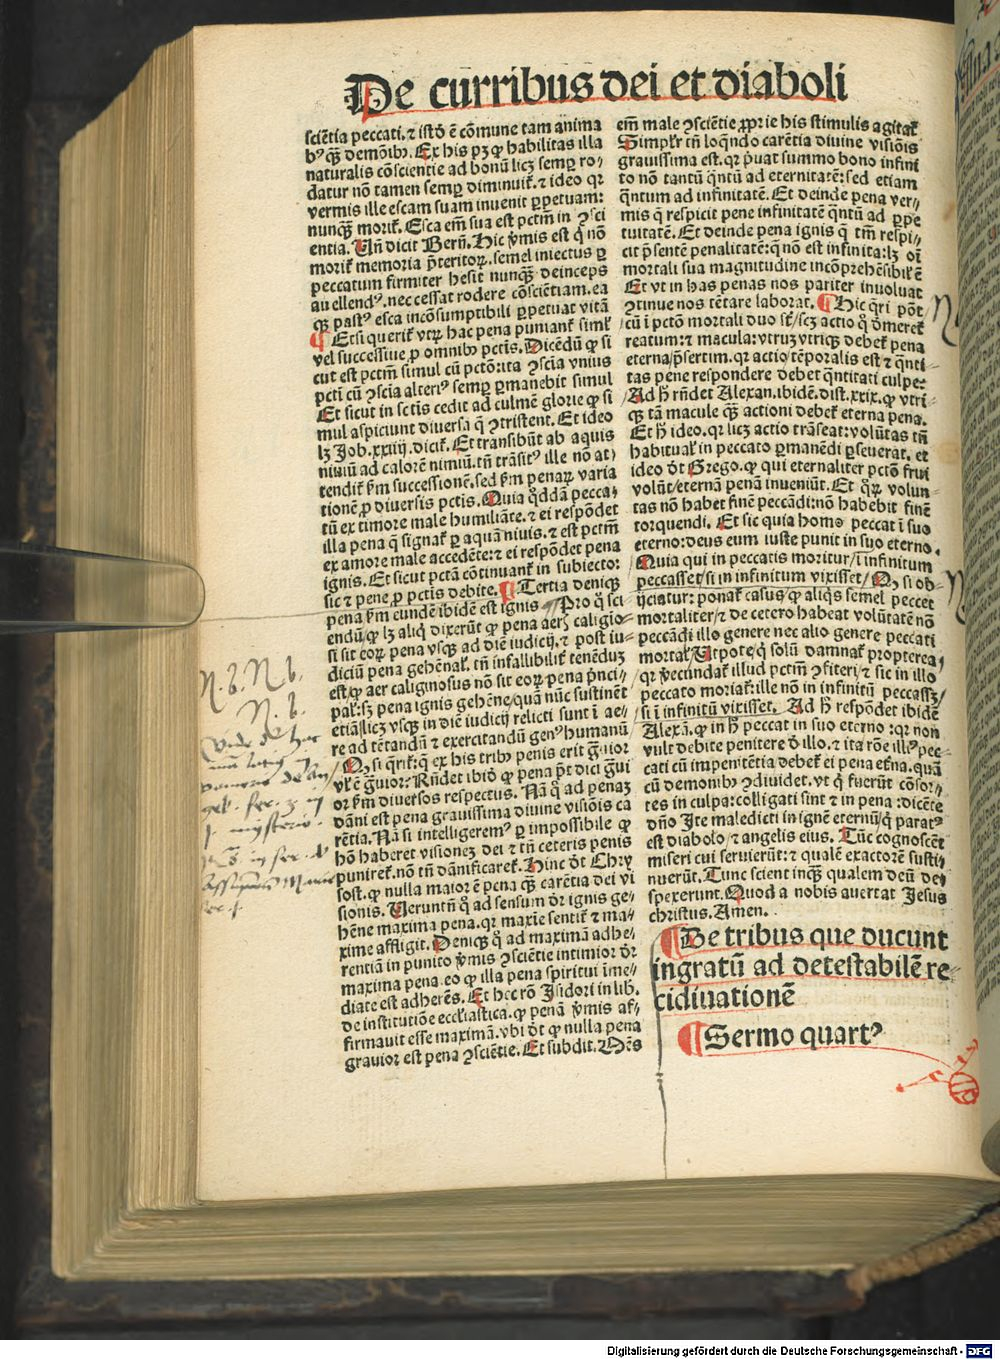 De curribus dei et diaboli
sciẽtia peccati. ⁊ istð ẽ cõmune tam anima
bꝰ q̃ꝫ demõibꝫ. Ex his pꝫ ꝙ habilitas illa
naturalis cõscientie ad bonũ licꝫ semꝑ ro-
datur nõ tamen semꝑ diminuit᷑. ⁊ ideo qꝛ
vermis ille escam suam inuenit ꝑpetuam:
nunq̃ꝫ morit᷑. Esca em̃ sua est pctm̃ in ꝯsci
entia. Un̄ dicit Bern̄. Hic ṽmis est q̇ nõ
morit᷑ memoria p̃teritoꝝ. semel iniectus ꝑ
peccatum firmiter hesit nunq̃ꝫ deinceps
auellendꝰ. nec cessat rodere cõsciẽtiam. ea
q̃ꝫ pastꝰ esca incõsumptibili ꝑpetuat vitã
¶ Etsi querit᷑ vtꝝ hac pena puniant᷑ siml᷑
vel successiue ꝓ omnibꝫ pctis. Dicẽdũ ꝙ si
cut est pctm̃ simul cũ pctõ: ita ꝯscia vnius
pcti cũ ꝯscia alterꝰ semꝑ ꝑmanebit simul
Et sicut in sctis cedit ad culmẽ glorie ꝙ si
mul aspiciunt diuersa q̃ ꝯtristent. Et ideo
lꝫ Job. xxiiij. dicit᷑. Et transibũt ab aquis
niuiũ ad calorẽ nimiũ. tñ trãsitꝰ ille nõ at-
tendit᷑ ẜm successionẽ. sed ẜm penaꝝ varia
tionẽ ꝓ diuersis pctis. Quia q̃dã pecca-
tũ ex timore male humiliãte. ⁊ ei respõdet
illa pena q̃ signat᷑ ꝑ aquã niuis. ⁊ est pctm̃
ex amore male accedẽte: ⁊ ei respõdet pena
ignis. Et sicut pctã cõtinuant᷑ in subiecto:
sic ⁊ pene ꝓ pctis debite. ¶ Tertia deniq̃ꝫ
pena ẜm eundẽ ibidẽ est ignis Pro q̊ sci-
endũ. ꝙ lꝫ aliq̇ dixerũt ꝙ pena aerꝭ caligio-
si sit eoꝝ pena vsqꝫ ad diẽ iudicij. ⁊ post iu-
diciũ pena gehẽnal᷑. tñ infallibilit᷑ tenẽduꝫ
est. ꝙ aer caliginosus nõ sit eoꝝ pena p̃nci-
pal᷑: sꝫ pena ignis gehẽne/quã nũc sustinẽt
etiã licꝫ vsqꝫ in diẽ iudicij relicti sunt ĩ ae-
re ad tẽtandũ ⁊ exercitandũ genꝰ humanũ
Q̃ si q̃rit᷑: q̃ ex his tribꝫ penis erit g̃uior
vl᷑ ẽ g̃uior? Rn̄det ibið ꝙ pena p̃t dici g̃ui
or ẜm diuersos respectus. Nã q̊ ad penaꝫ
dãni est pena grauissima diuine visiõis ca
rẽtia. Nã si intelligeremꝰ ꝑ impossibile ꝙ
hõ haberet visioneꝫ dei ⁊ tñ ceteris penis
puniret᷑. nõ tñ dãnificaret᷑. Hinc ðt Chry
sost. ꝙ nulla maior ẽ pena q̃ꝫ carẽtia dei vi
sionis. Ueruntñ q̊ ad sensum ðr ignis ge-
hẽne maxima pena. qꝛ maxie sentit᷑ ⁊ ma-
xime affligit. Deniqꝫ q̊ ad maximã adhe-
rentiã in punito ṽmis ꝯsciẽtie intimior ðr
maxima pena. eo ꝙ illa pena spiritui ime-
diate est adherẽs. Et hec rõ Isidori in lib.
de institutiõe eccl̃iastica. ꝙ penã ṽmis af-
firmauit esse maximã. vbi ðt ꝙ nulla pena
grauior est pena ꝯsciẽtie. Et subdit. Oẽs
em̃ male ꝯsciẽtie ꝓprie his stimulis agitat᷑
Simplr̃ tñ loq̃ndo carẽtia diuine visiõis
grauissima est. qꝛ p̃uat summo bono infini
to nõ tantũ q̃ntũ ad eternitatẽ: sed etiam
q̃ntum ad infinitatẽ. Et deinde pena ver-
mis q̃ respicit pene infinitatẽ q̃ntũ ad ꝑpe
tuitatẽ. Et deinde pena ignis q̃ tm̃ respi-
cit p̃sentẽ penalitatẽ: q̃ nõ est infinita: lꝫ oĩ
mortali sua magnitudine incõprehẽsibil᷑ ẽ
Et vt in has penas nos pariter inuoluat
ꝯtinue nos tẽtare laborat. ¶ Hic q̃ri põt
cũ ĩ pctõ mortali duo st̃/ scꝫ actio q̊ ðmeret᷑
reatum: ⁊ macula: vtruꝫ vtriqꝫ debet᷑ pena
eterna/p̃sertim. qꝛ actio tẽporalis est ⁊ q̃nti-
tas pene respondere debet q̃ntitati culpe:
Ad ħ rñdet Alexan. ibidẽ. dist. xxix. ꝙ vtri-
qꝫ tã macule q̃ꝫ actioni debet᷑ eterna pena.
Et ħ ideo. qꝛ licꝫ actio trãseat: volũtas tñ
habitual᷑ in peccato ꝑmanẽdi ꝑseuerat. et
ideo ðt Grego. ꝙ qui eternaliter pctõ frui
volũt/eternã penã inueniũt. Et q̇ꝝ volun-
tas nõ habet finẽ peccãdi: nõ habebit finẽ
torquendi. Et sic quia homo peccat ĩ suo
eterno: deus eum iuste punit in suo eterno.
Quia qui in peccatis moritur/ĩ infinitum
peccasset/si in infinitum vixisset/Q̃ si ob-
ijciatur: ponat᷑ casus/ꝙ aliq̇s semel peccet
mortaliter/⁊ de cetero habeat volũtatẽ nõ
peccãdi illo genere nec alio genere peccati
mortal᷑/Utpote/q̇ solũ damnat᷑ propterea/
qꝛ ṽecundat᷑ illud pctm̃ ꝯfiteri/⁊ sic in illo
peccato moriat᷑: ille nõ in infinitũ peccasꝫ/
si ĩ infinitũ vixisset. Ad ħ respõdet ibidẽ
Alexã. ꝙ in ħ peccat in suo eterno: qꝛ non
vult debite penitere ð illo. ⁊ ita rõe illꝰ pec-
cati cũ impenitẽtia debet᷑ ei pena et̃na. quã
cũ demonibꝫ ꝯdiuidet. vt q̇ fuerũt cõsor-
tes in culpa: colligati sint ⁊ in pena: dicẽte
dño Ite maledicti in ignẽ eternũ/q̇ paratꝰ
est diabolo/⁊ angelis eius. Tũc cognoscẽt
miseri cui seruierũt: ⁊ qualẽ exactorẽ susti-
nuerũt. Tunc scient inqꝫ qualem deũ de-
spexerunt. Quod a nobis auertat Jesus
christus. Amen.
¶ De tribus que ducunt
ingratũ ad detestabilẽ re-
cidiuationẽ
¶ Sermo quartꝰ
N. b. N b.
N. b.
Digitalisierung gefördert durch die Deutsche Forschungsgemeinschaft - DFG